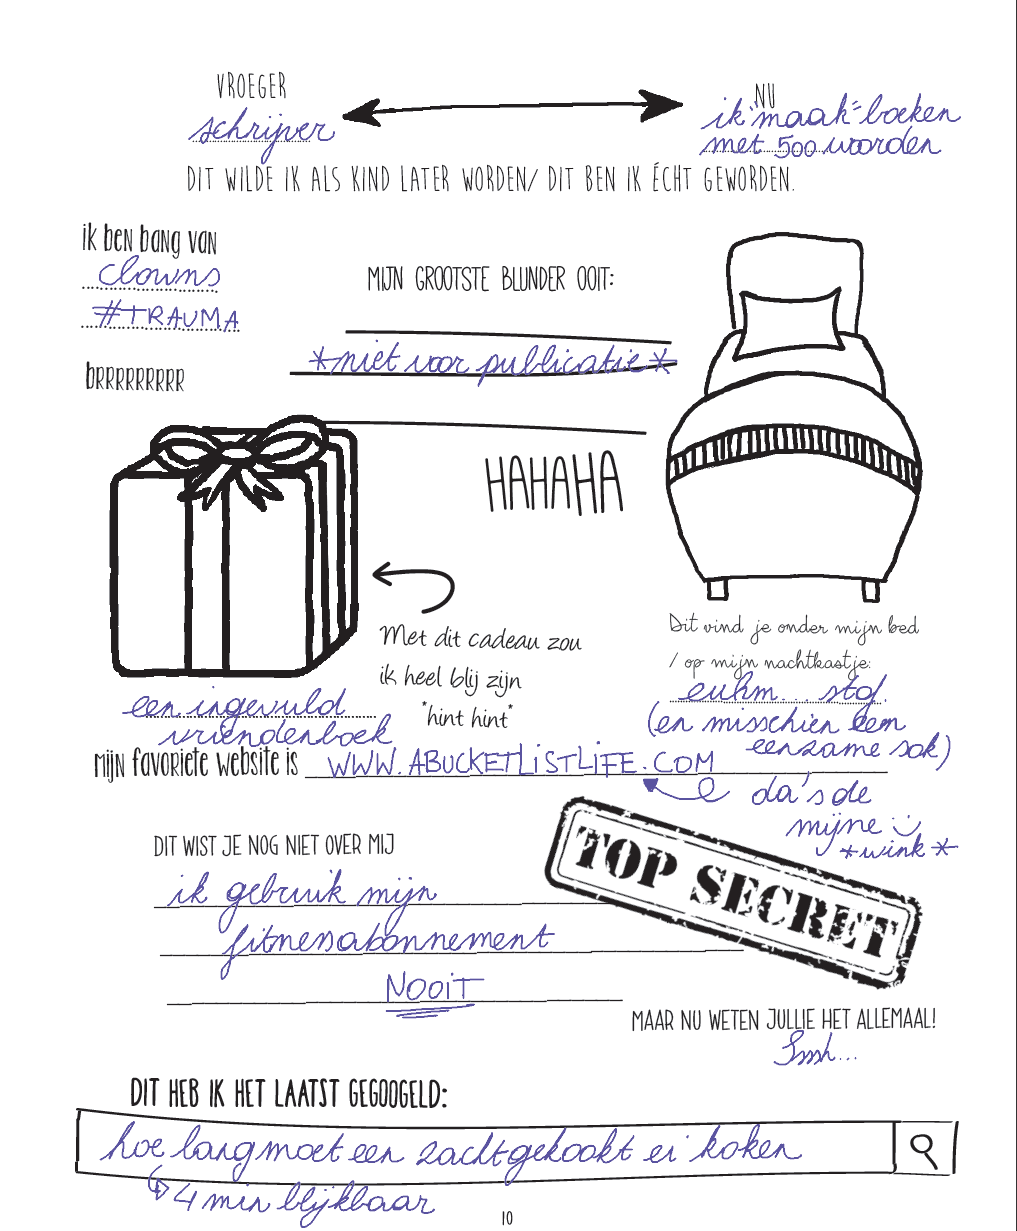 VROEGER
NU
schrijver
ik "maak" boeken
met 500 woorden
DIT WILDE IK ALS KIND LATER WORDEN/ DIT BEN IK ÉCHT GEWORDEN.
ik ben bang van
clowns
#TRAUMA
brrrrrrrrrr
MIJN GROOTSTE BLUNDER OOIT:
*niet voor publicatie*
HAHAHA
Met dit cadeau zou
ik heel blij zijn
*hint hint*
een ingevuld
vriendenboek
Dit vind je onder mijn bed
/ op mijn nachtkastje:
euhm... stof
(en misschien een
eenzame sok)
mijn favoriete website is WWW.ABUCKETLISTLIFE.COM
da's de
mijne :-)
*wink*
DIT WIST JE NOG NIET OVER MIJ
ik gebruik mijn
fitnessabonnement
NOOIT
TOP SECRET
MAAR NU WETEN JULLIE HET ALLEMAAL!
Sssh...
DIT HEB IK HET LAATST GEGOOGELD:
hoe lang moet een zachtgekookt ei koken
4 min blijkbaar
10